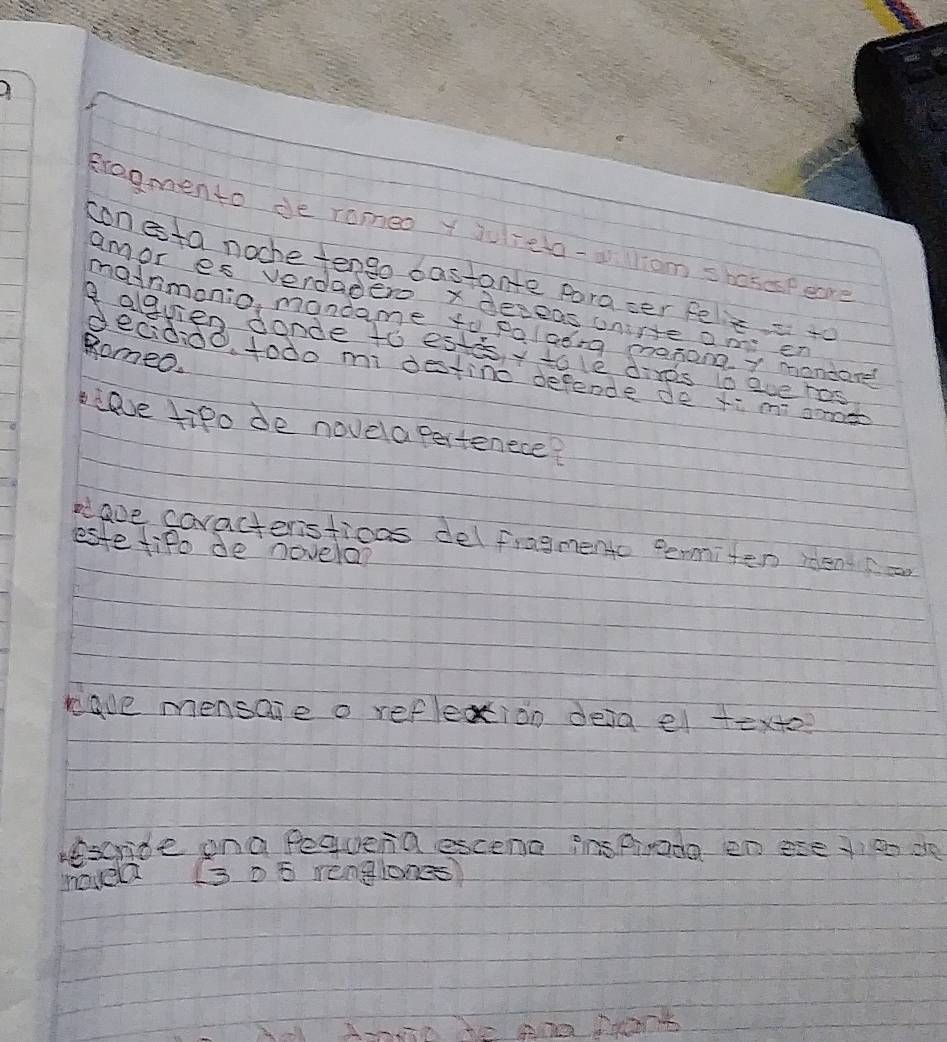 a
Fragmento de romeo y julieta - william shasespeare
con esta noche tengo bastante para ser feliz si to
amor es verdadero y deseas unirte a mi en
matrimonio, mandame tu palabra mañana, y mandare
a alguien donde tú estés, y tole diras lo que has
decidido, todo mi destino depende de ti mi amado
Romeo.
¿Que tipo de novela pertenece?
¿que caracteristicas del fragmento permiten identificar
este tipo de novela?
¿que mensaje o reflexión deja el texto?
escribe una pequeña escena inspirada en ese tipo de
novela (3 o 5 renglones)